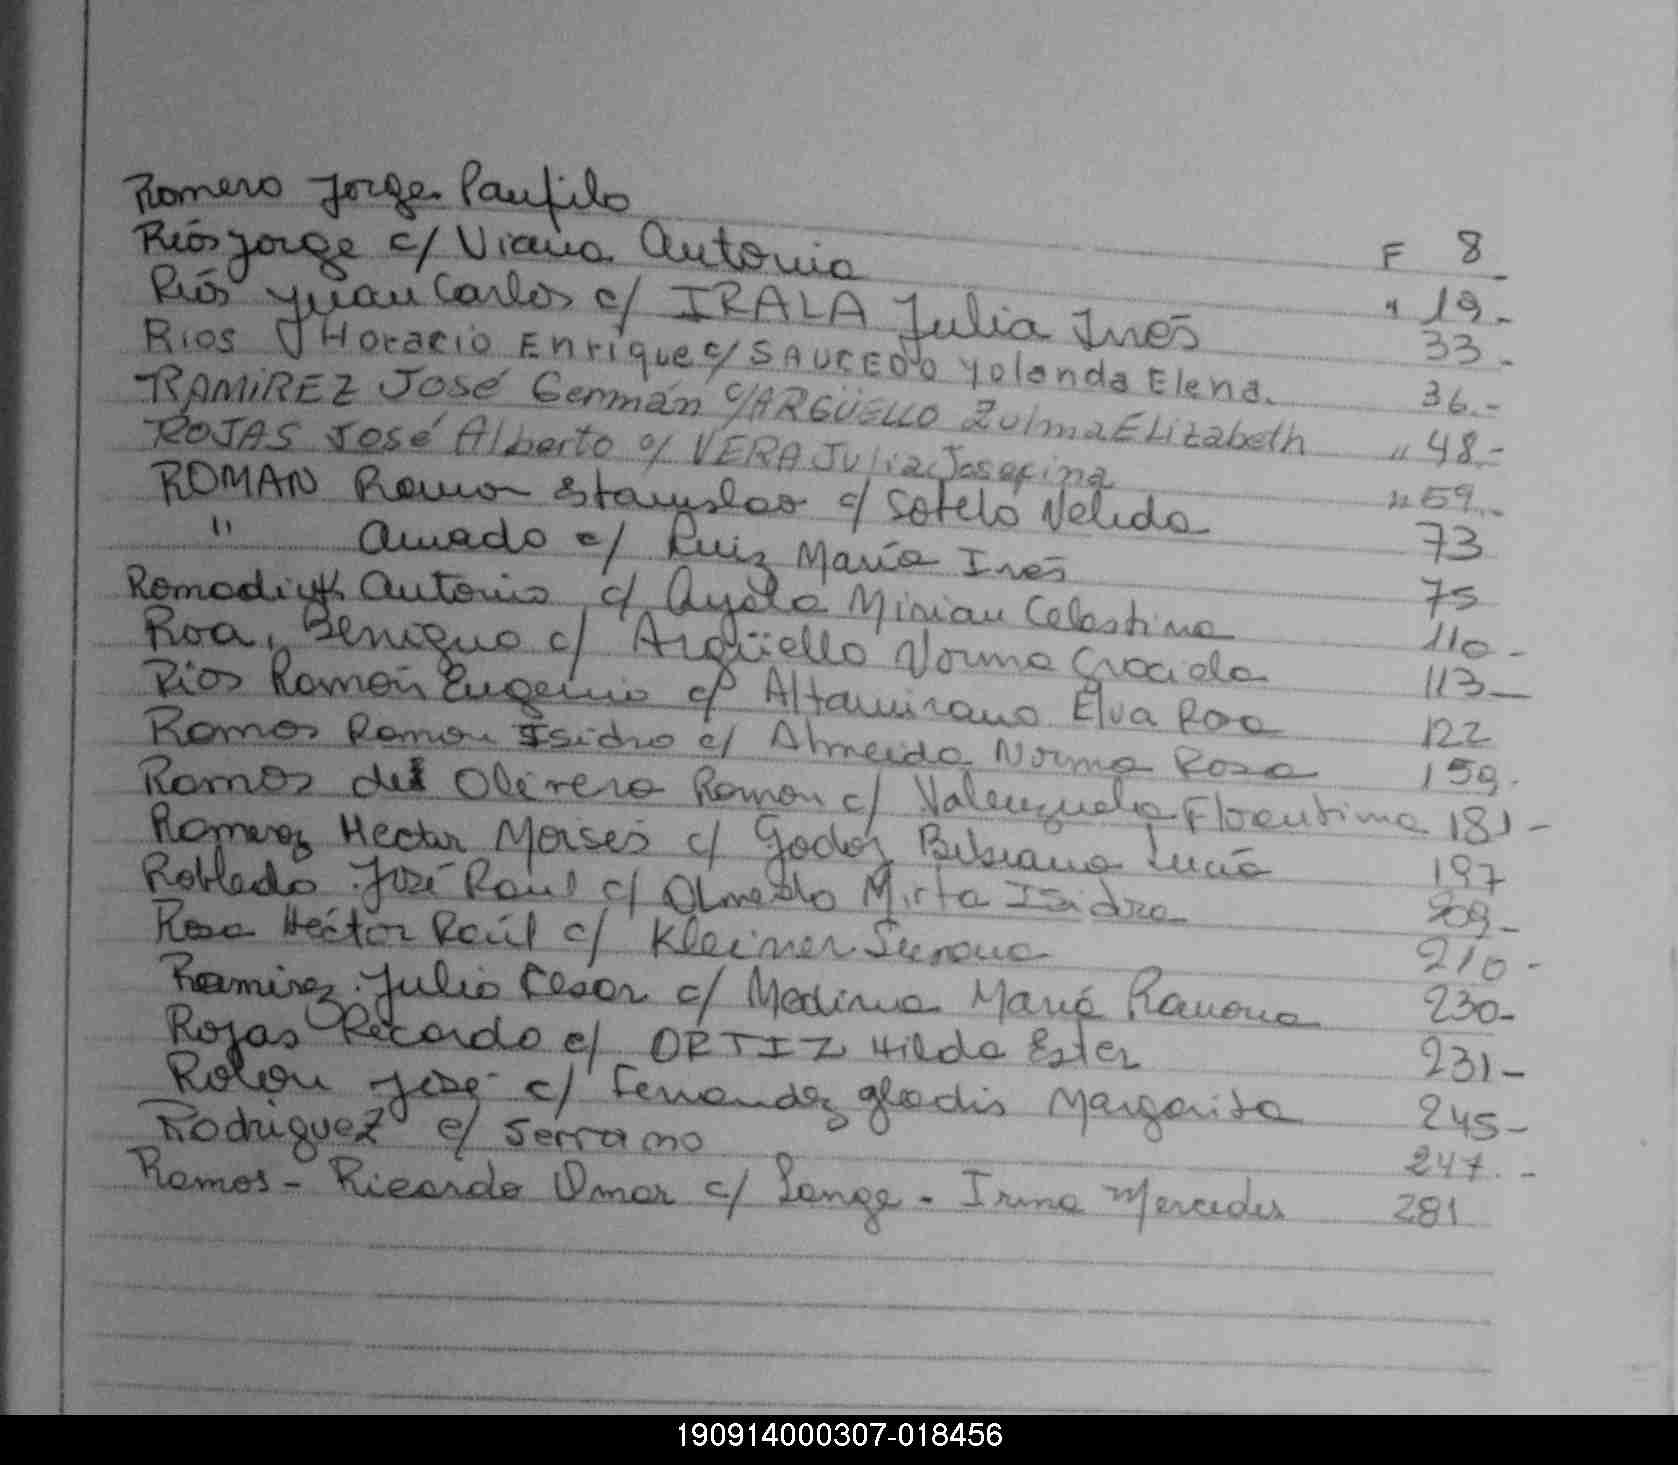 Romero Jorge Panfilo F 8
Riós Jorge c/ Viana Antonia " 19-
Riós Juan Carlos c/ IRALA Julia Inés 33-
Rios Horacio Enrique c/ SAUCEDO Yolanda Elena. 36.-
RAMÍREZ José Germán c/ ARGÜELLO Zulma Elizabeth " 48.-
ROJAS José Alberto c/ VERA Julia Josefina " 59.-
ROMAN Ramon Estanislao c/ Sotelo Nelida 73
" Amado c/ Ruiz María Inés 75
Antonio c/ Ayala Mirian Celestina 110-
Roa, Benigno c/ Argüello Norma Graciela 113-
Rios Ramón Eugenio c/ Altamirano Elva Rosa 122
Ramos Ramon Isidro c/ Almeida Norma Rosa 159-
Ramos del Olivero Ramon c/ Valenzuela Florentina 181-
Hector Moises c/ Godoy Bibiana Lucía 197
Robledo José Raul c/ Olmedo Mirta Isidra 209-
Rosa Héctor Raúl c/ Kleiner Susana 210-
Ramirez Julio Cesar c/ Medina María Ramona 230-
Rojas Ricardo c/ ORTIZ Hilda Ester 231-
Rolon José c/ Fernandez Gladis Margarita 245-
Rodriguez c/ Serrano 247.-
Ramos - Ricardo Omar c/ Lange - Irma Mercedes 281
190914000307-018456